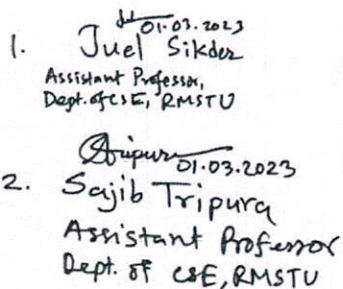 01.03.2023
1. Juel Sikder
Assistant Professor,
Dept. of CSE, RMSTU
Tripura 01.03.2023
2. Sajib Tripura
Assistant Professor
Dept. of CSE, RMSTU